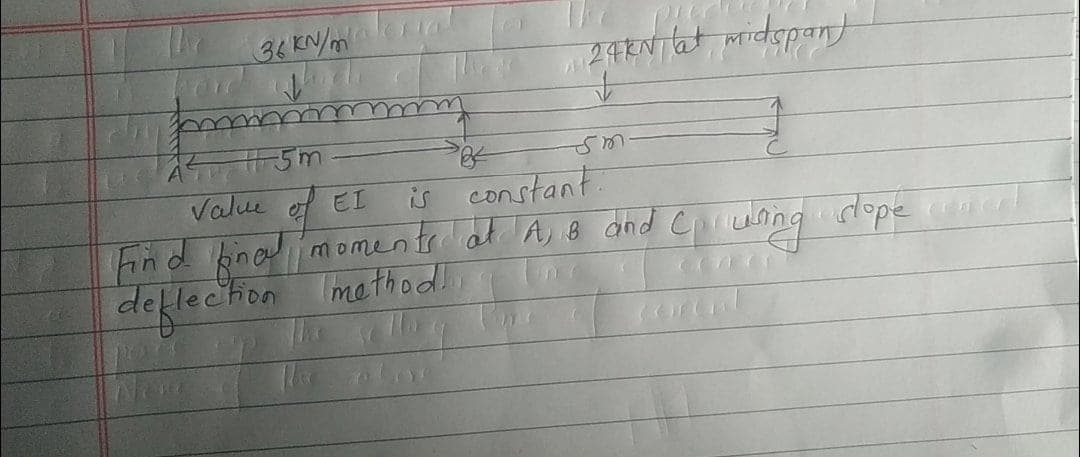 36 KN/m
24KN (at midspan)
5m
5m
A
B
C
Value of EI is constant.
Find final moments at A, B and C using slope
deflection method.